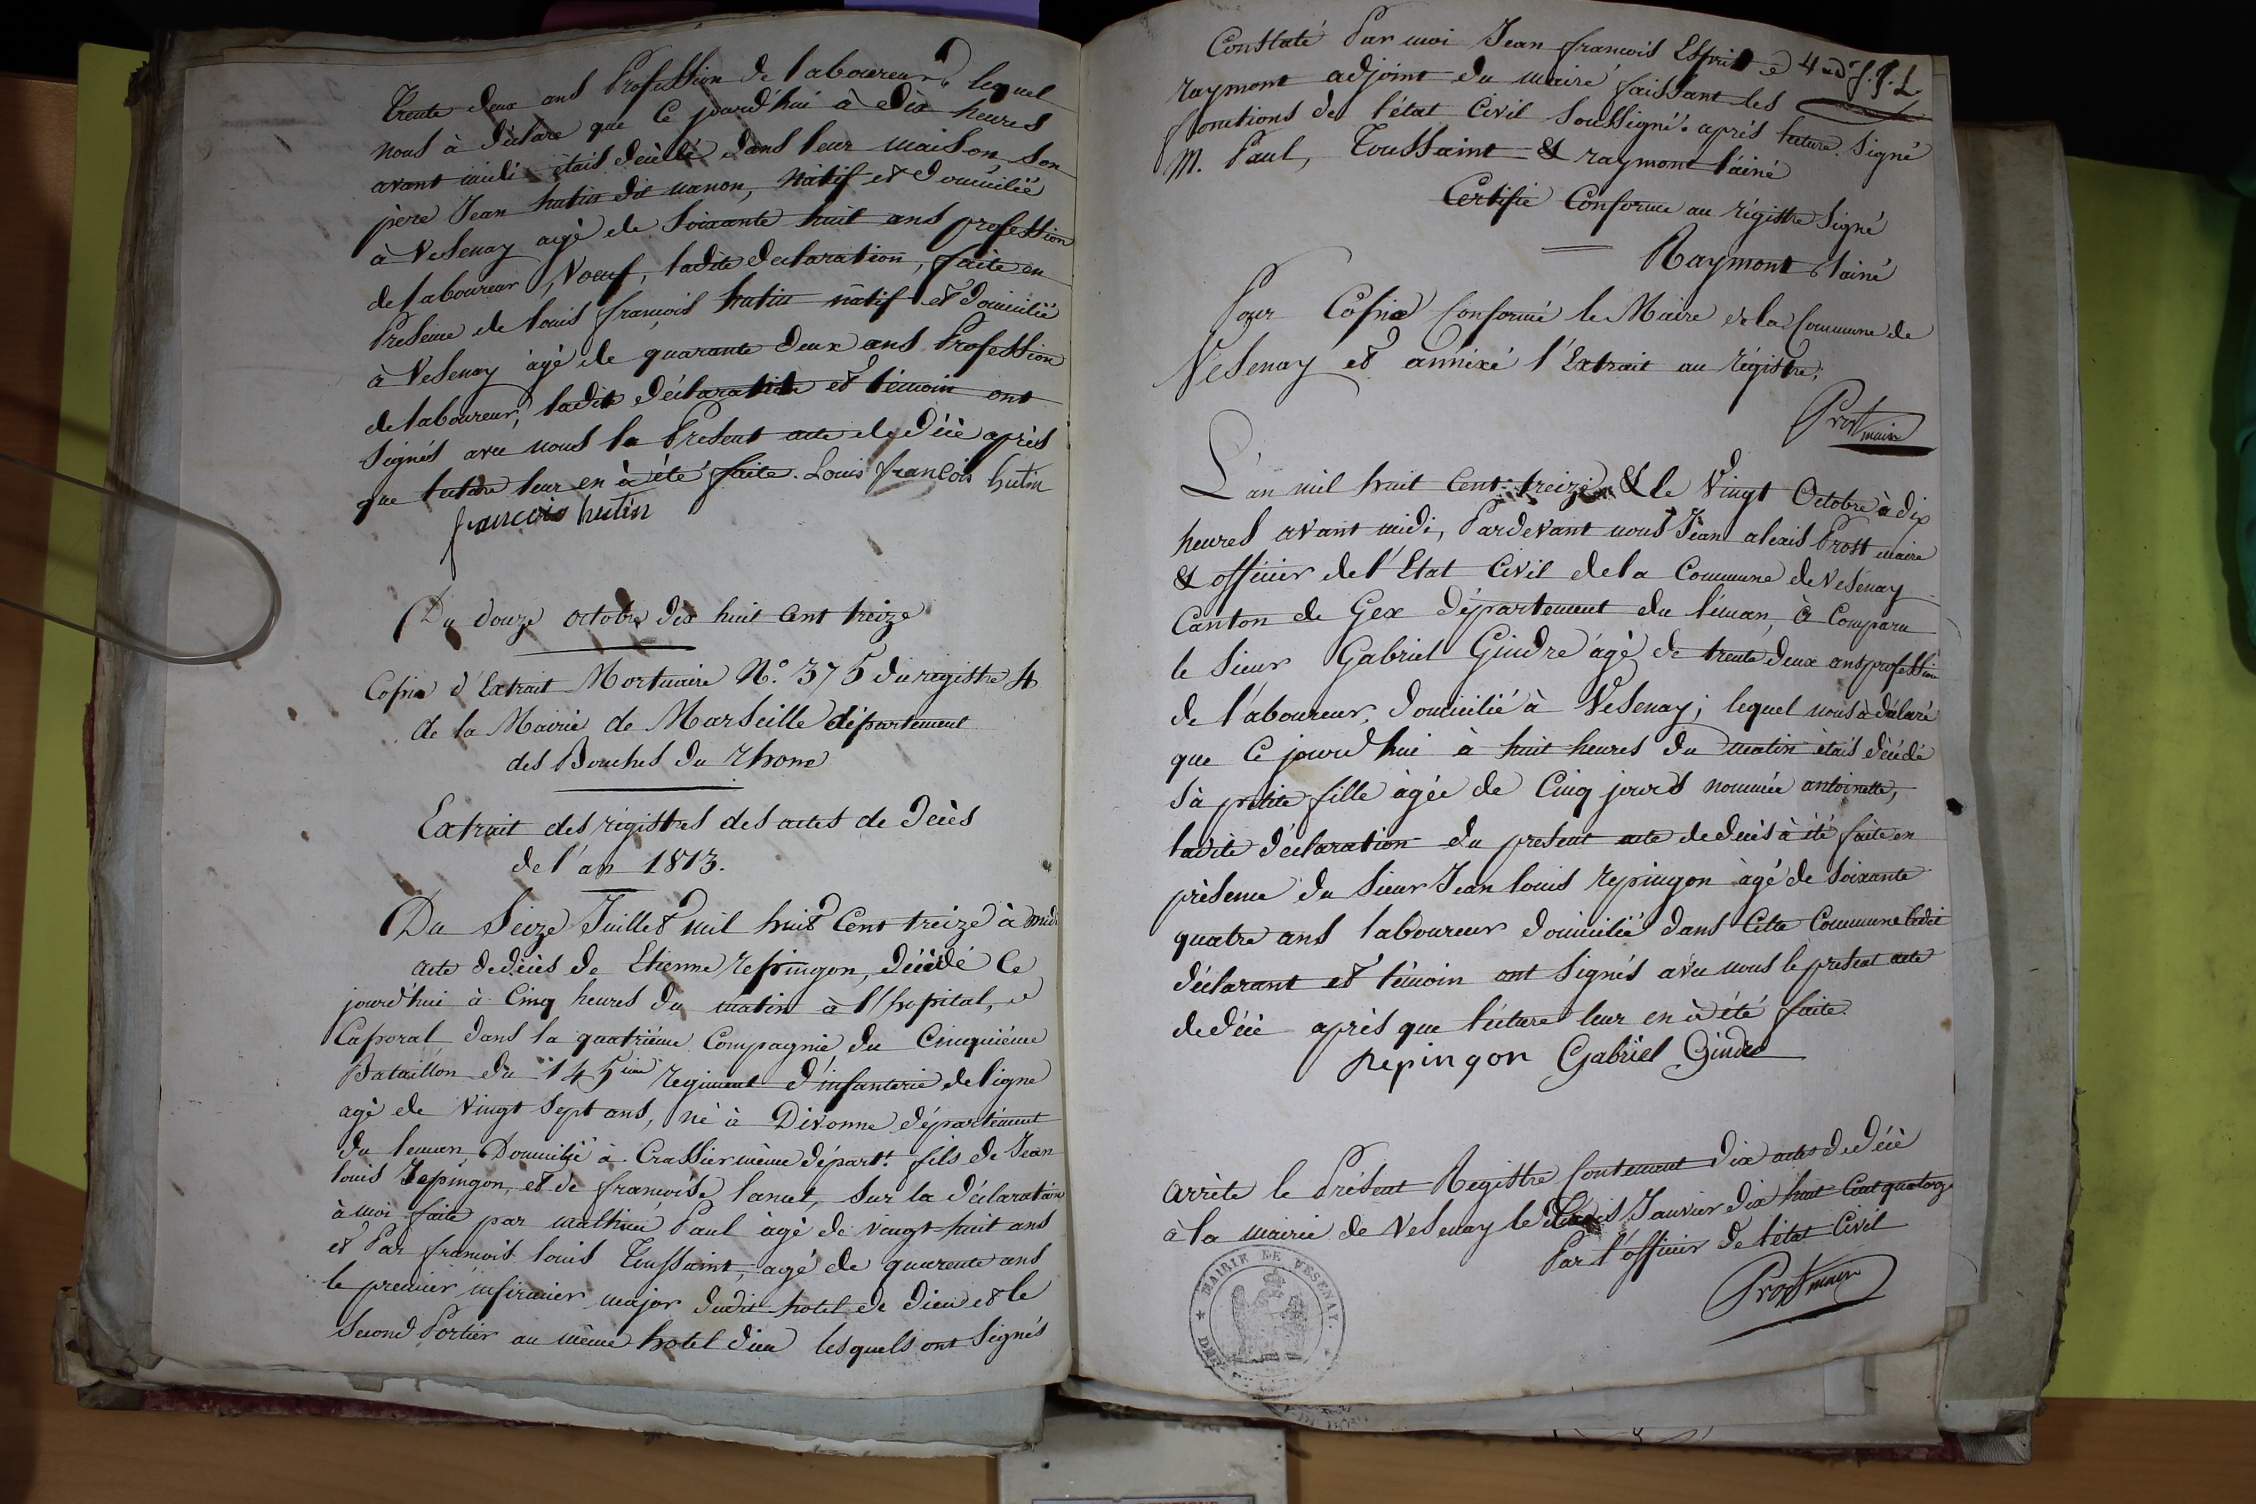 trente deux ans Profession de laboureur lequel
nous à déclaré que Ce jourd'hui à dix heures
avant midi étais décédé dans leur maison son
père Jean hutin dit nanon, natif et domicilié
à Vesenay agé de Soixante huit ans profession
de laboureur, Voeuf, ladite declaration, faite en
Presence de louis françois hutin natif et domicilié
à Vesenay àgé de quarante deux ans Profession
de laboureur, ladite déclaration et témoin ont
Signés avec nous le Present acte de décè après
que lecture leur en à été faite. Louis françois hutin
francois hutin
Du douze octobre dix huit Cent treize
Copie d'Extrait Mortuaire N.º 375 du registre 4
de la Mairie de Marseille département
des Bouches du Rhone
Extrait des régistres des actes de Décès
de l'an 1813.
Du Seize Juillet mil huit Cent treize à midi
acte de décès de Etienne repingon, décédé Ce
jourd'hui à Cinq heures du matin à l'hopital,
Caporal dans la quatriéme Compagnie du Cinquiéme
Bataillon du 145ième regiment d'infanterie de ligne
agé de Vingt Sept ans, né à Divonne département
du leman, Domicilié à Crassier même départ.t fils de Jean
louis Repingon, et de françoise lancet, Sur la déclaration
à moi faite par mathieu Paul àgé de vingt huit ans
et Par francois louis Toussaint, agé de quarente ans
le premier infirmier major dudit hotel de Dieu et le
Second Portier au même hotel dieu lesquels ont Signés
Constaté Par moi Jean francois Esprit
raymont adjoint du maire faissant les
fonctions de l'état Civil Soussigné. aprés lecture. Signé
M. Paul, Toussaint & raymont l'ainé
Certifié Conforme au régistre Signé
Raymont l'ainé
Pour Copie Conforme le Maire de la Commune de
Vésenay et annéxé l'Extrait au régistre,
Prost maire
L'an mil huit Cent treize & le Vingt Octobre à dix
heures avant midi, Pardevant nous Jean alexis Prost maire
& officier de l'Etat Civil de la Commune de Vesenay
Canton de Gex Département du léman, à Comparu
le Sieur Gabriel Gindre àgé de trente deux ans profession
de l'aboureur, Domicilié à Vesenay; lequel nous à déclaré
que Ce jourd'hui à huit heures du matin étais décédé
sà petite fille àgée de Cinq jours nommée antoinette,
ladite déclaration du présent acte de decès à été faite en
présence du Sieur Jean louis repingon àgé de Soixante
quatre ans laboureur domicilié dans Cette Commune ledit
déclarant et témoin ont Signés avec nous le présent acte
de décè après que lécture leur en à été faite.
Repingon Gabriel Gindre
Arrète le Présent Registre Contenent dix actes de décè
à la mairie de Vesenay le Janvier dix huit Cent quatorze
Par l'officier de l'état Civil
Prost maire
MAIRIE DE VESENAY.